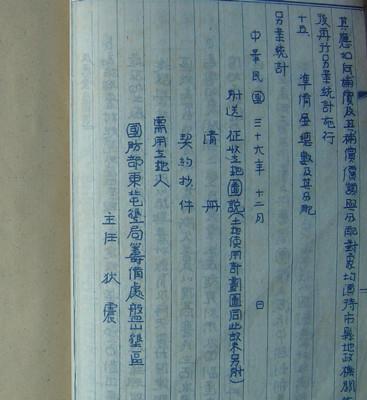 其應如何補償及其補償價額與分配對象均須待市縣地政機關
後再行另案統計施行
十五 準備金總數及其分配
另案統計
中華民國三十六年十二月 日
附送 征收土地圖說(土地使用計劃圖同此故不另附)
清冊
契約抄件
需用土地人
國防部東屯墾局籌備處盤山墾區
主任 狄震